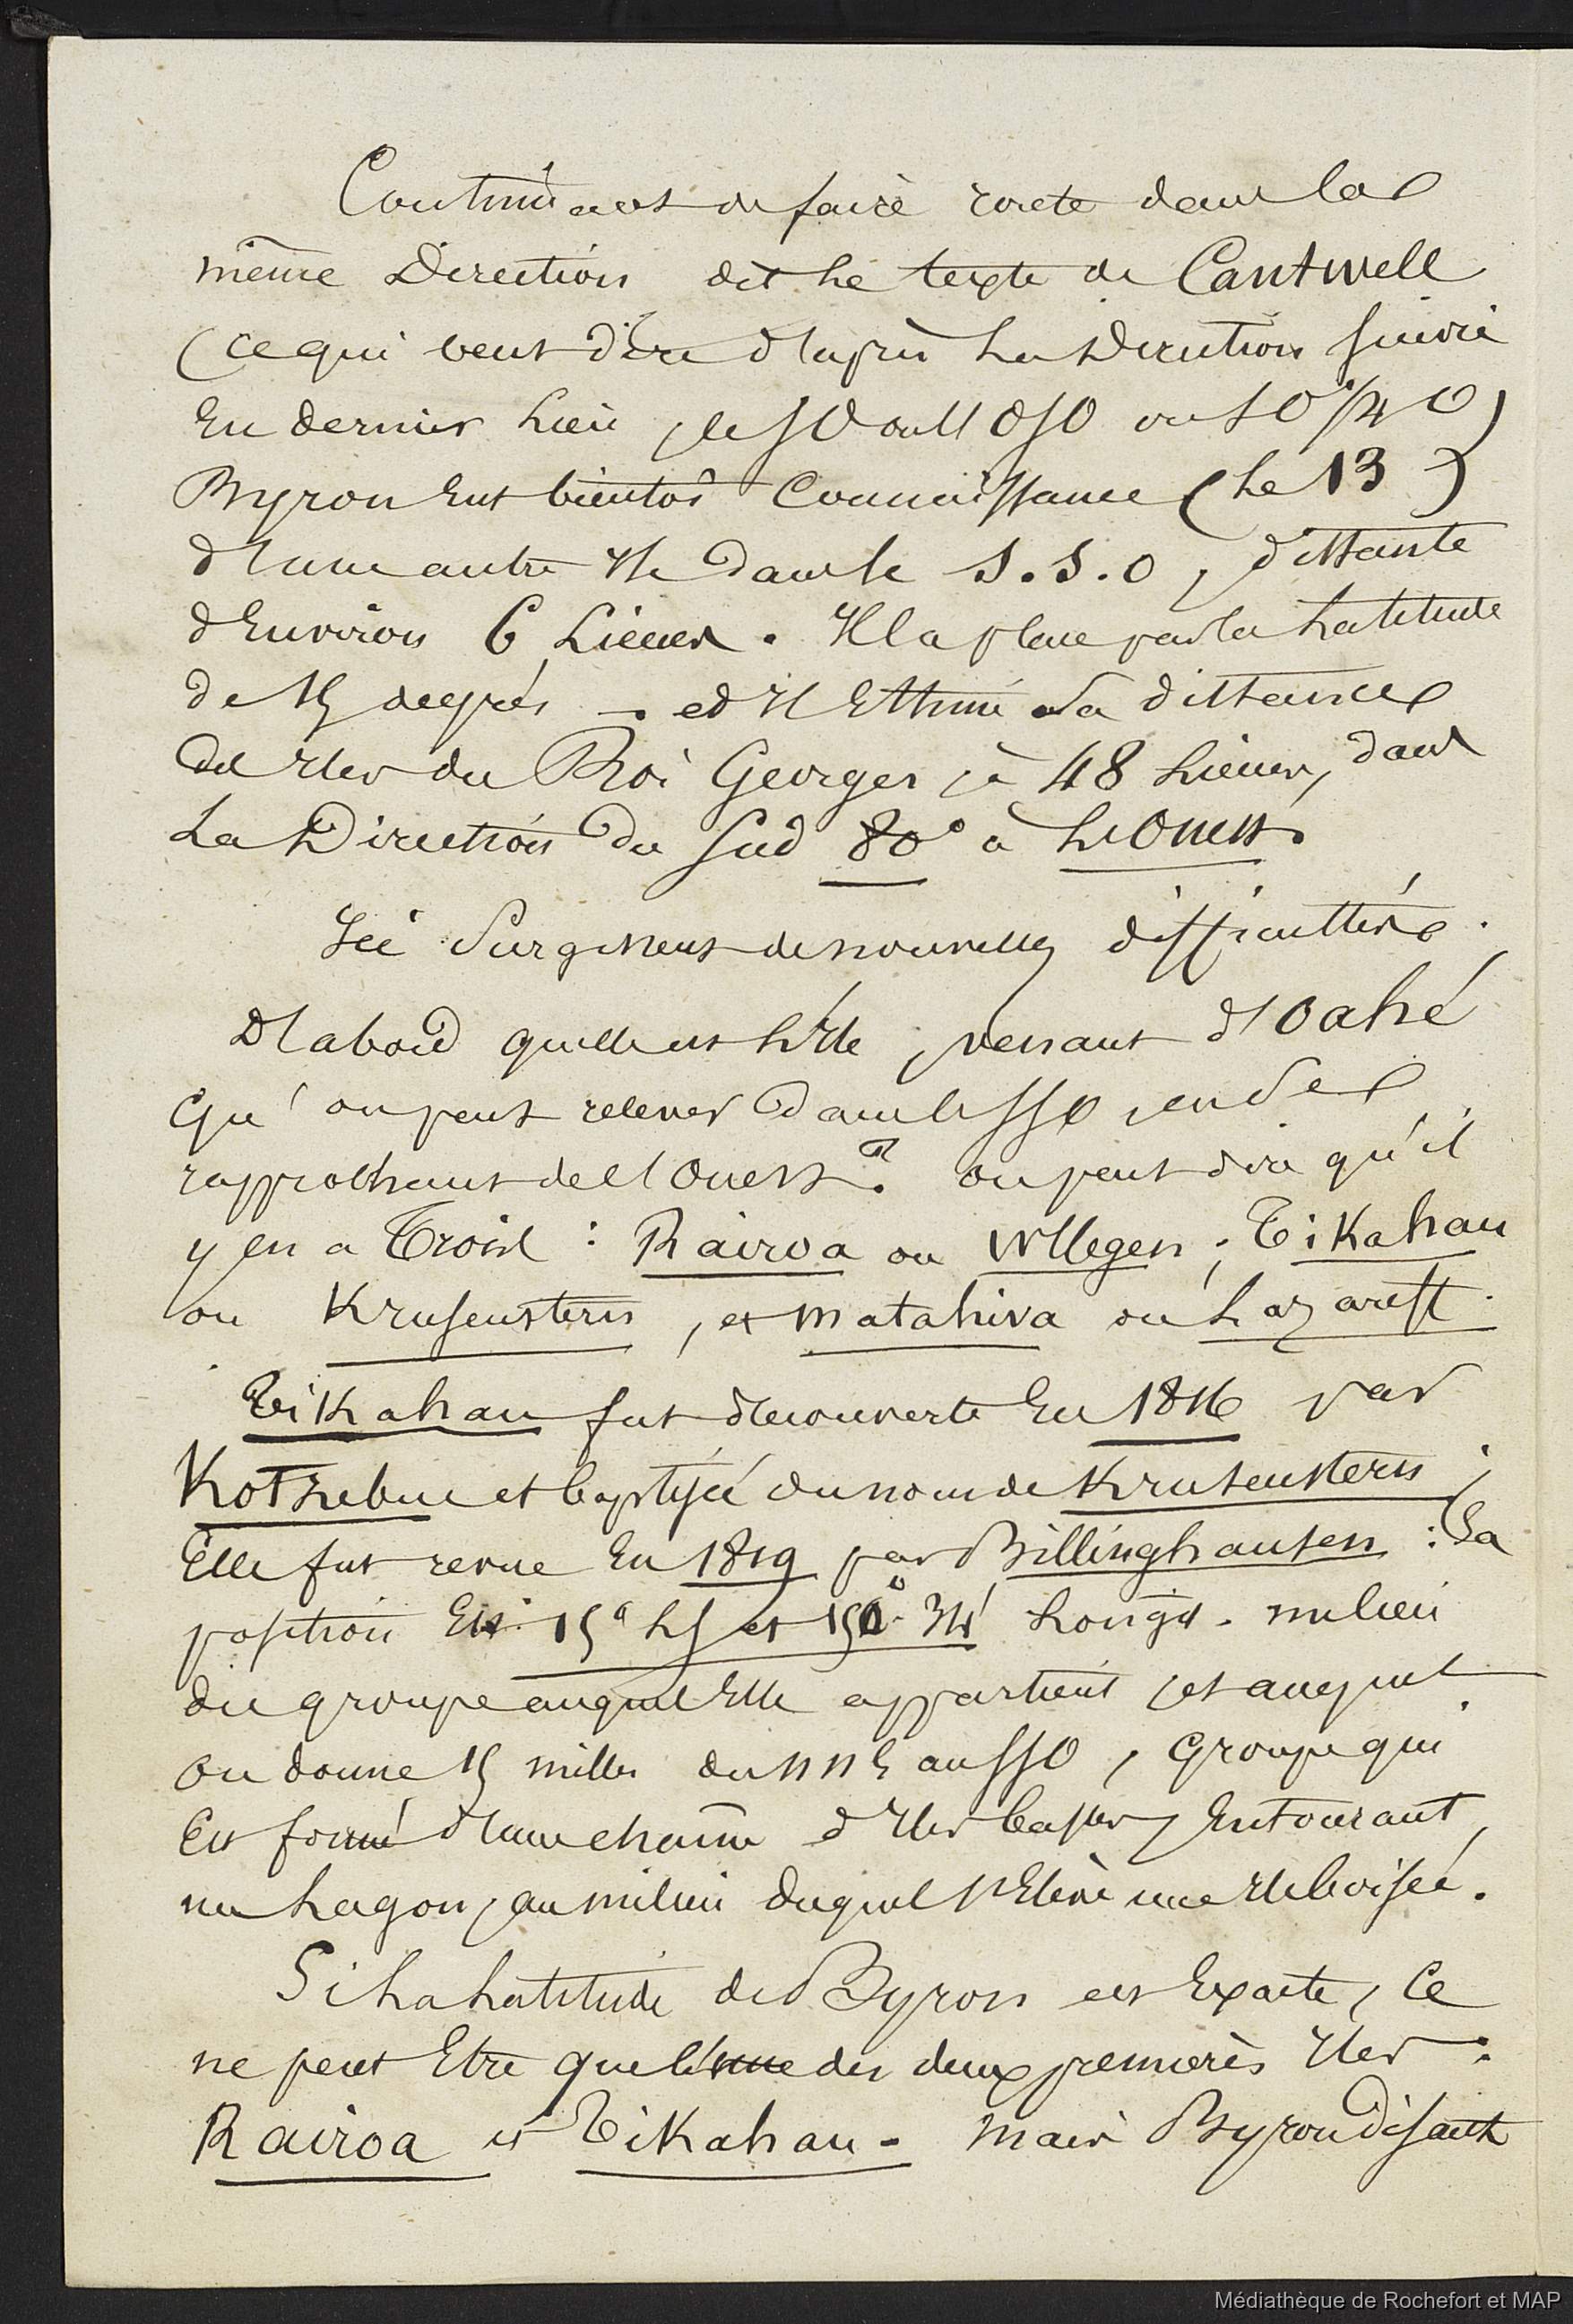 Continuant de faire route dans la
même Direction dit le texte de Cantwell
(ce qui veut dire d'après la Direction suivie
En dernier Lieu, le SO ou l'OSO ou SO 1/4 O)
Byron Eut bientôt Connaissance (le 13)
d'une autre Ile dans le S.S.O, distante
d'Environ 6 Lieues. Il la place par la Latitude
de 15 degrés - et Il Estime sa distance
des Iles du Roi Georges à 48 Lieues, dans
La Direction du Sud 80° à L'Ouest.
Ici Surgissent de nouvelles difficultés.
D'abord quelle est L'Ile, venant d'Oahé
qu'on peut relever dans le SSO, en se
rapprochant de l'Ouest? on peut dire qu'il
y en a Trois : Rairoa ou Vlegen ; Tikahau
ou Krusenstern, et Matahiva ou Lazareff.
Tikahau fut découverte En 1816 par
Kotzebue et baptisée du nom de Krusenstern ;
Elle fut revue En 1819 par Billinghausen : Sa
position Est 15° LS et 150° 34' Longit. milieu
du groupe auquel Elle appartient, et auquel
on donne 15 milles du NNE au SSO, Groupe qui
Est formé d'une chaîne d'Iles basses, Entourant
un Lagon, au milieu duquel s'Elève une Ile boisée.
Si La Latitude de Byron est Exacte, Ce
ne peut Etre que l'une des deux premières Iles :
Rairoa et Tikahau - Mais Byron disant
Médiathèque de Rochefort et MAP